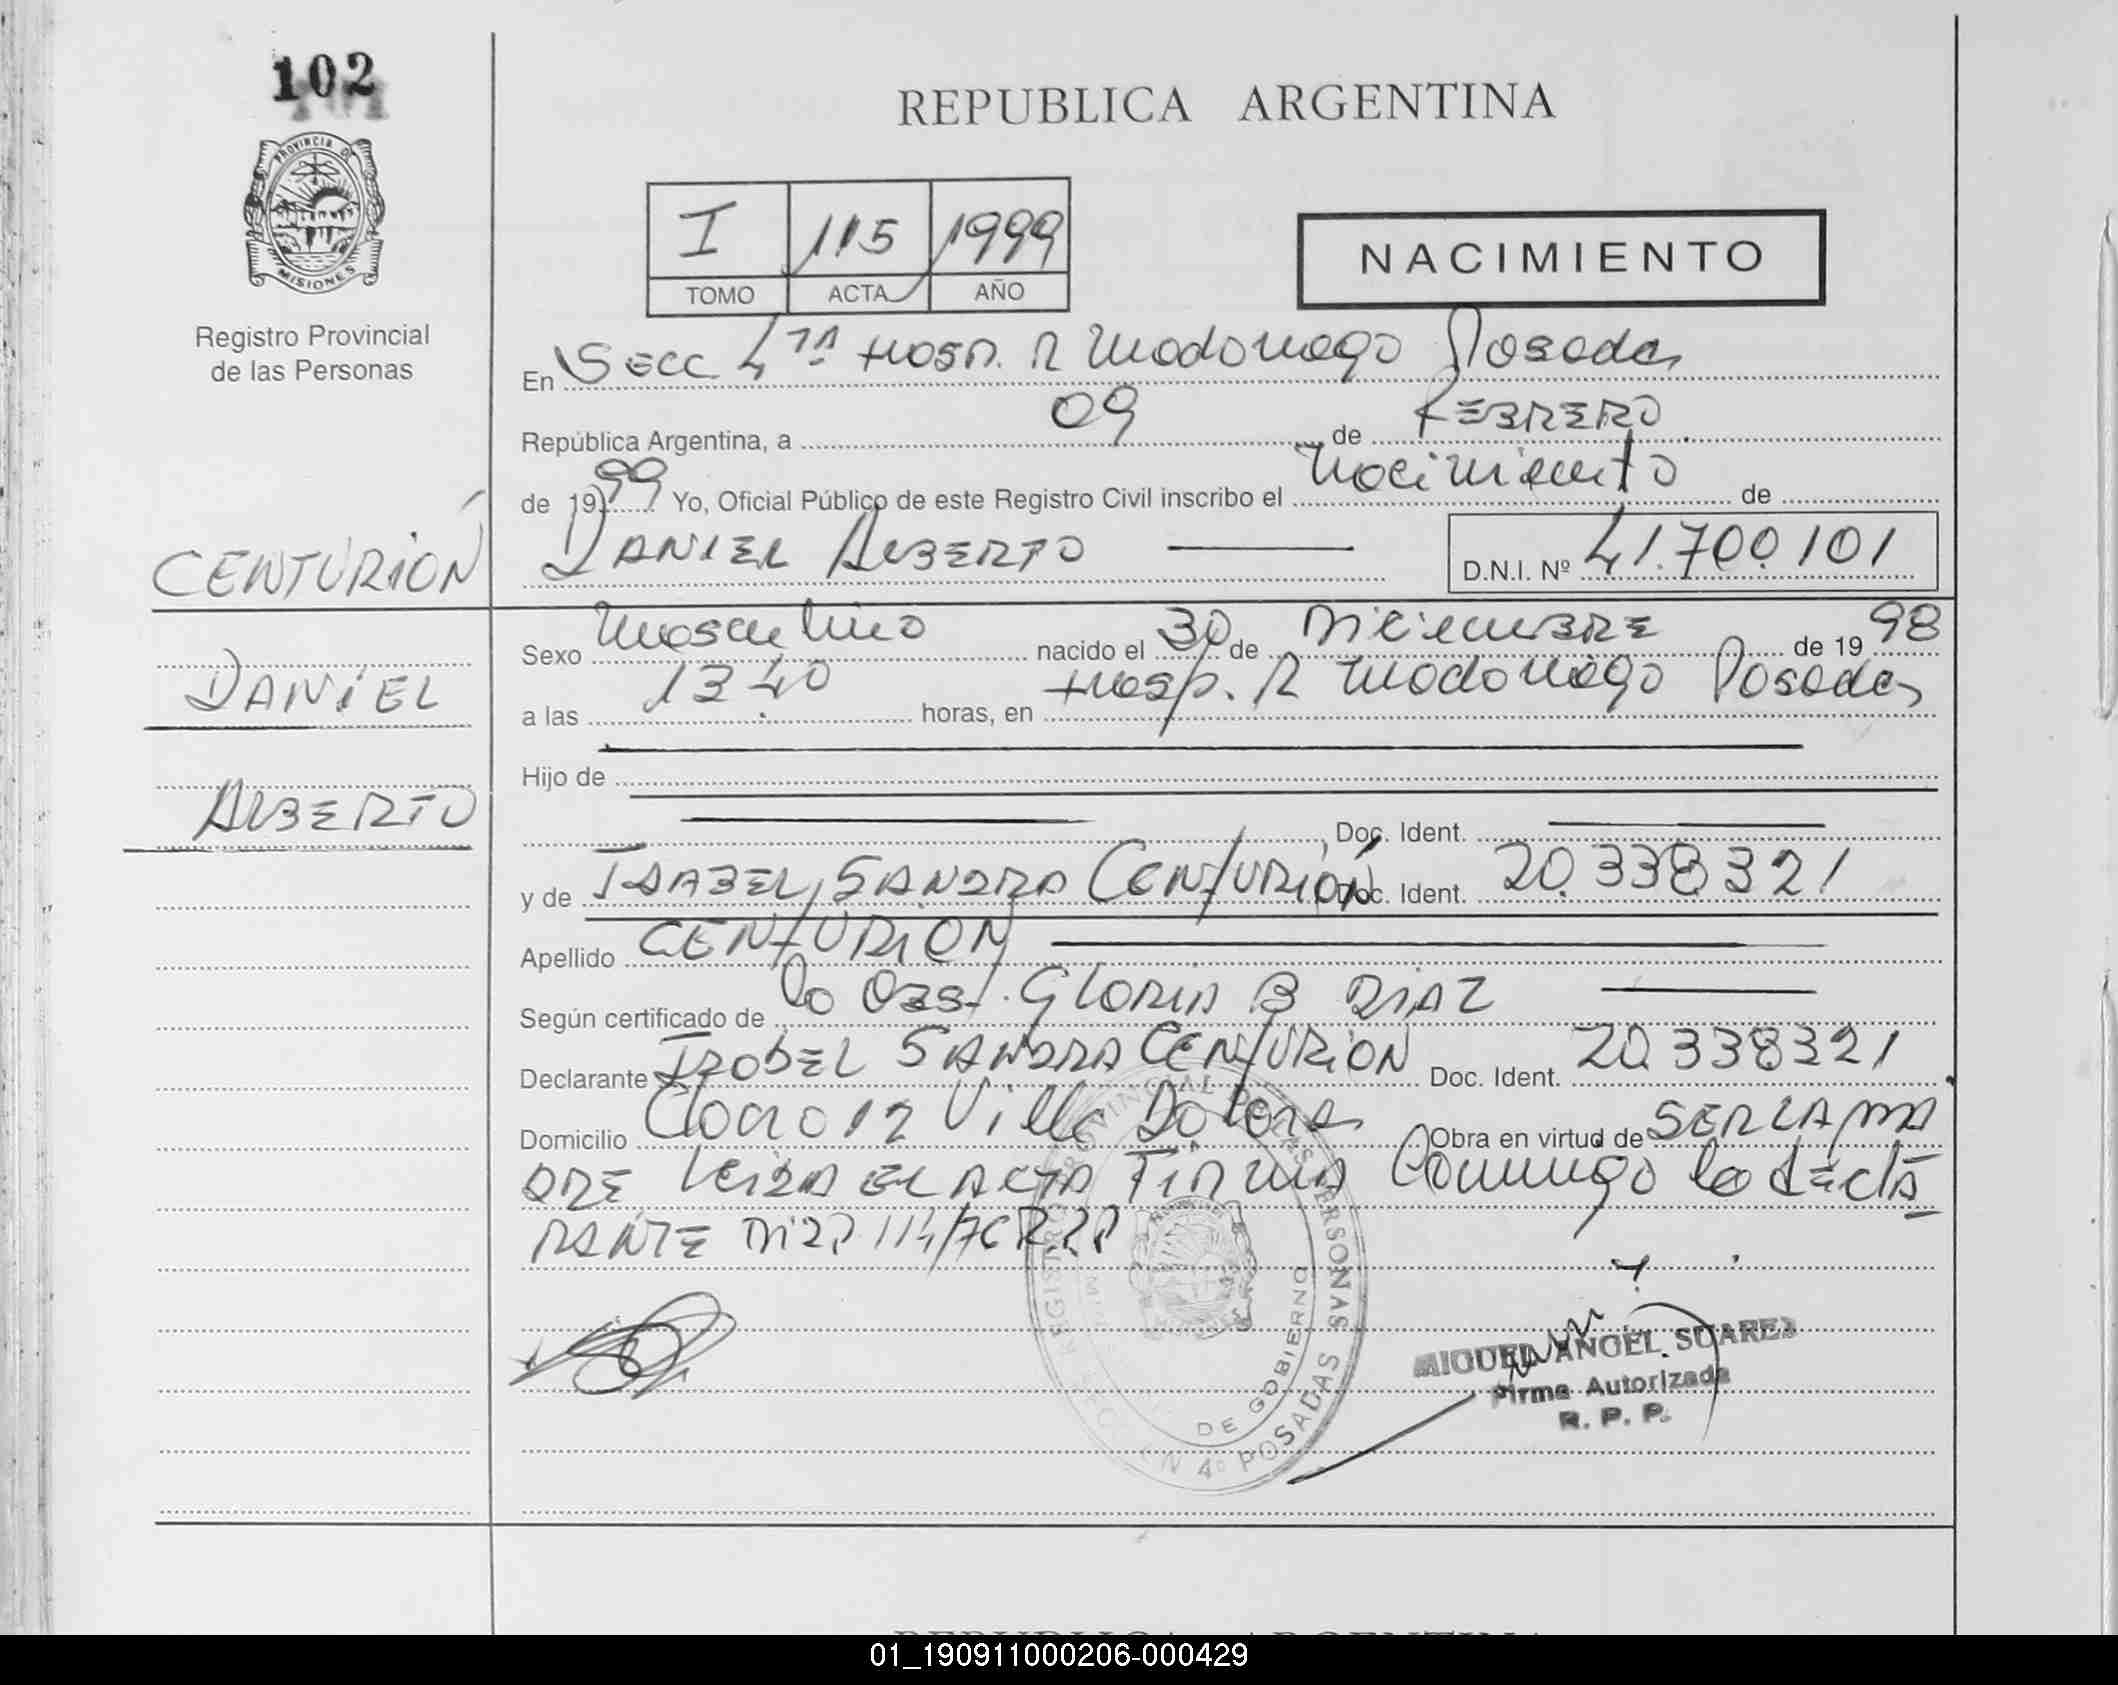 102
PROVINCIA DE
MISIONES
Registro Provincial
de las Personas
REPUBLICA ARGENTINA
I 115 1999
TOMO ACTA AÑO
NACIMIENTO
En Secc 4ta Hosp. R Madariaga Posadas
República Argentina, a 09 de FEBRERO
de 1999 Yo, Oficial Público de este Registro Civil inscribo el Nacimiento de
CENTURIÓN
DANIEL ALBERTO D.N.I. Nº 41.700.101
DANIEL
ALBERTO
Sexo Masculino nacido el 30 de DICIEMBRE de 1998
a las 13 40 horas, en Hosp. R Madariaga Posadas
Hijo de
Doc. Ident.
y de ISABEL SANDRA CENTURIÓN Doc. Ident. 20.338.321
Apellido CENTURIÓN
Según certificado de la Obst. GLORIA B DIAZ
Declarante ISABEL SANDRA CENTURIÓN Doc. Ident. 20.338321
Domicilio 12 Villa Obra en virtud de SER LA MA
DRE Leida EL ACTA FIRMA Conmigo la decla
RANTE
REGISTRO PROVINCIAL DE LAS PERSONAS
DE GOBIERNO
SECCION 4º POSADAS
MIGUEL ANGEL SUAREZ
Firma Autorizada
R. P. P.
REPUBLICA ARGENTINA
01_190911000206-000429